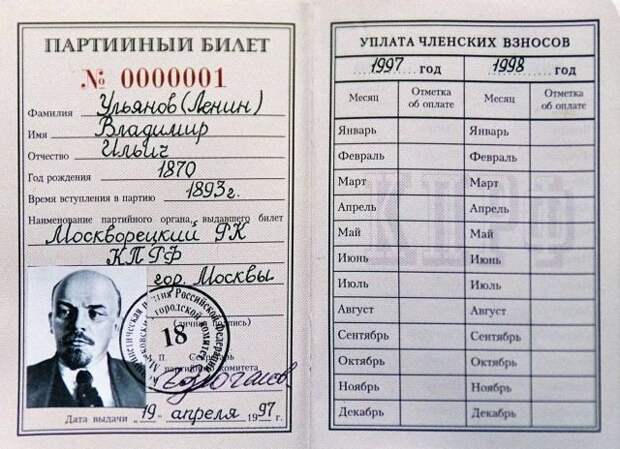 ПАРТИЙНЫЙ БИЛЕТ
№ 0000001
Фамилия Ульянов (Ленин)
Имя Владимир
Отчество Ильич
Год рождения 1870
Время вступления в партию 1893г.
Наименование партийного органа, выдавшего билет
Москворецкий РК
КПРФ
гор. Москвы
(личная подпись)
18
М. П. Секретарь
партийного комитета
Дата выдачи 19 апреля 1997 г.
УПЛАТА ЧЛЕНСКИХ ВЗНОСОВ
1997 год 1998 год
Месяц Отметка об оплате Месяц Отметка об оплате
Январь Январь
Февраль Февраль
Март Март
Апрель Апрель
Май Май
Июнь Июнь
Июль Июль
Август Август
Сентябрь Сентябрь
Октябрь Октябрь
Ноябрь Ноябрь
Декабрь Декабрь
КПРФ